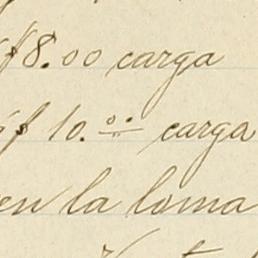 á $8.00 carga
á $10.00 carga
en la loma